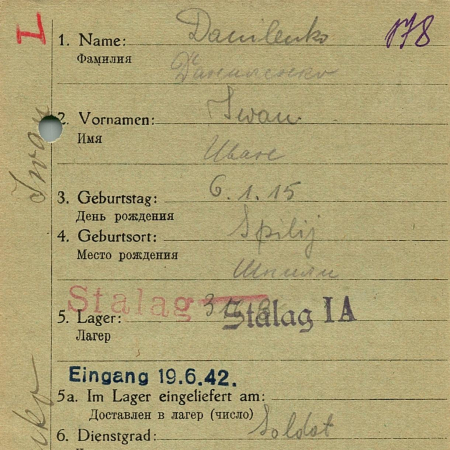 I
1. Name: Danilenko 178
Фамилия Даниленко
2. Vornamen: Iwan
Имя Иван
3. Geburtstag: 6.1.15
День рождения
4. Geburtsort: Spilij
Место рождения Шпили
Stalag Stalag IA
5. Lager:
Лагерь
Eingang 19.6.42.
5a. Im Lager eingeliefert am:
Доставлен в лагерь (число)
6. Dienstgrad: Soldat
Iwan